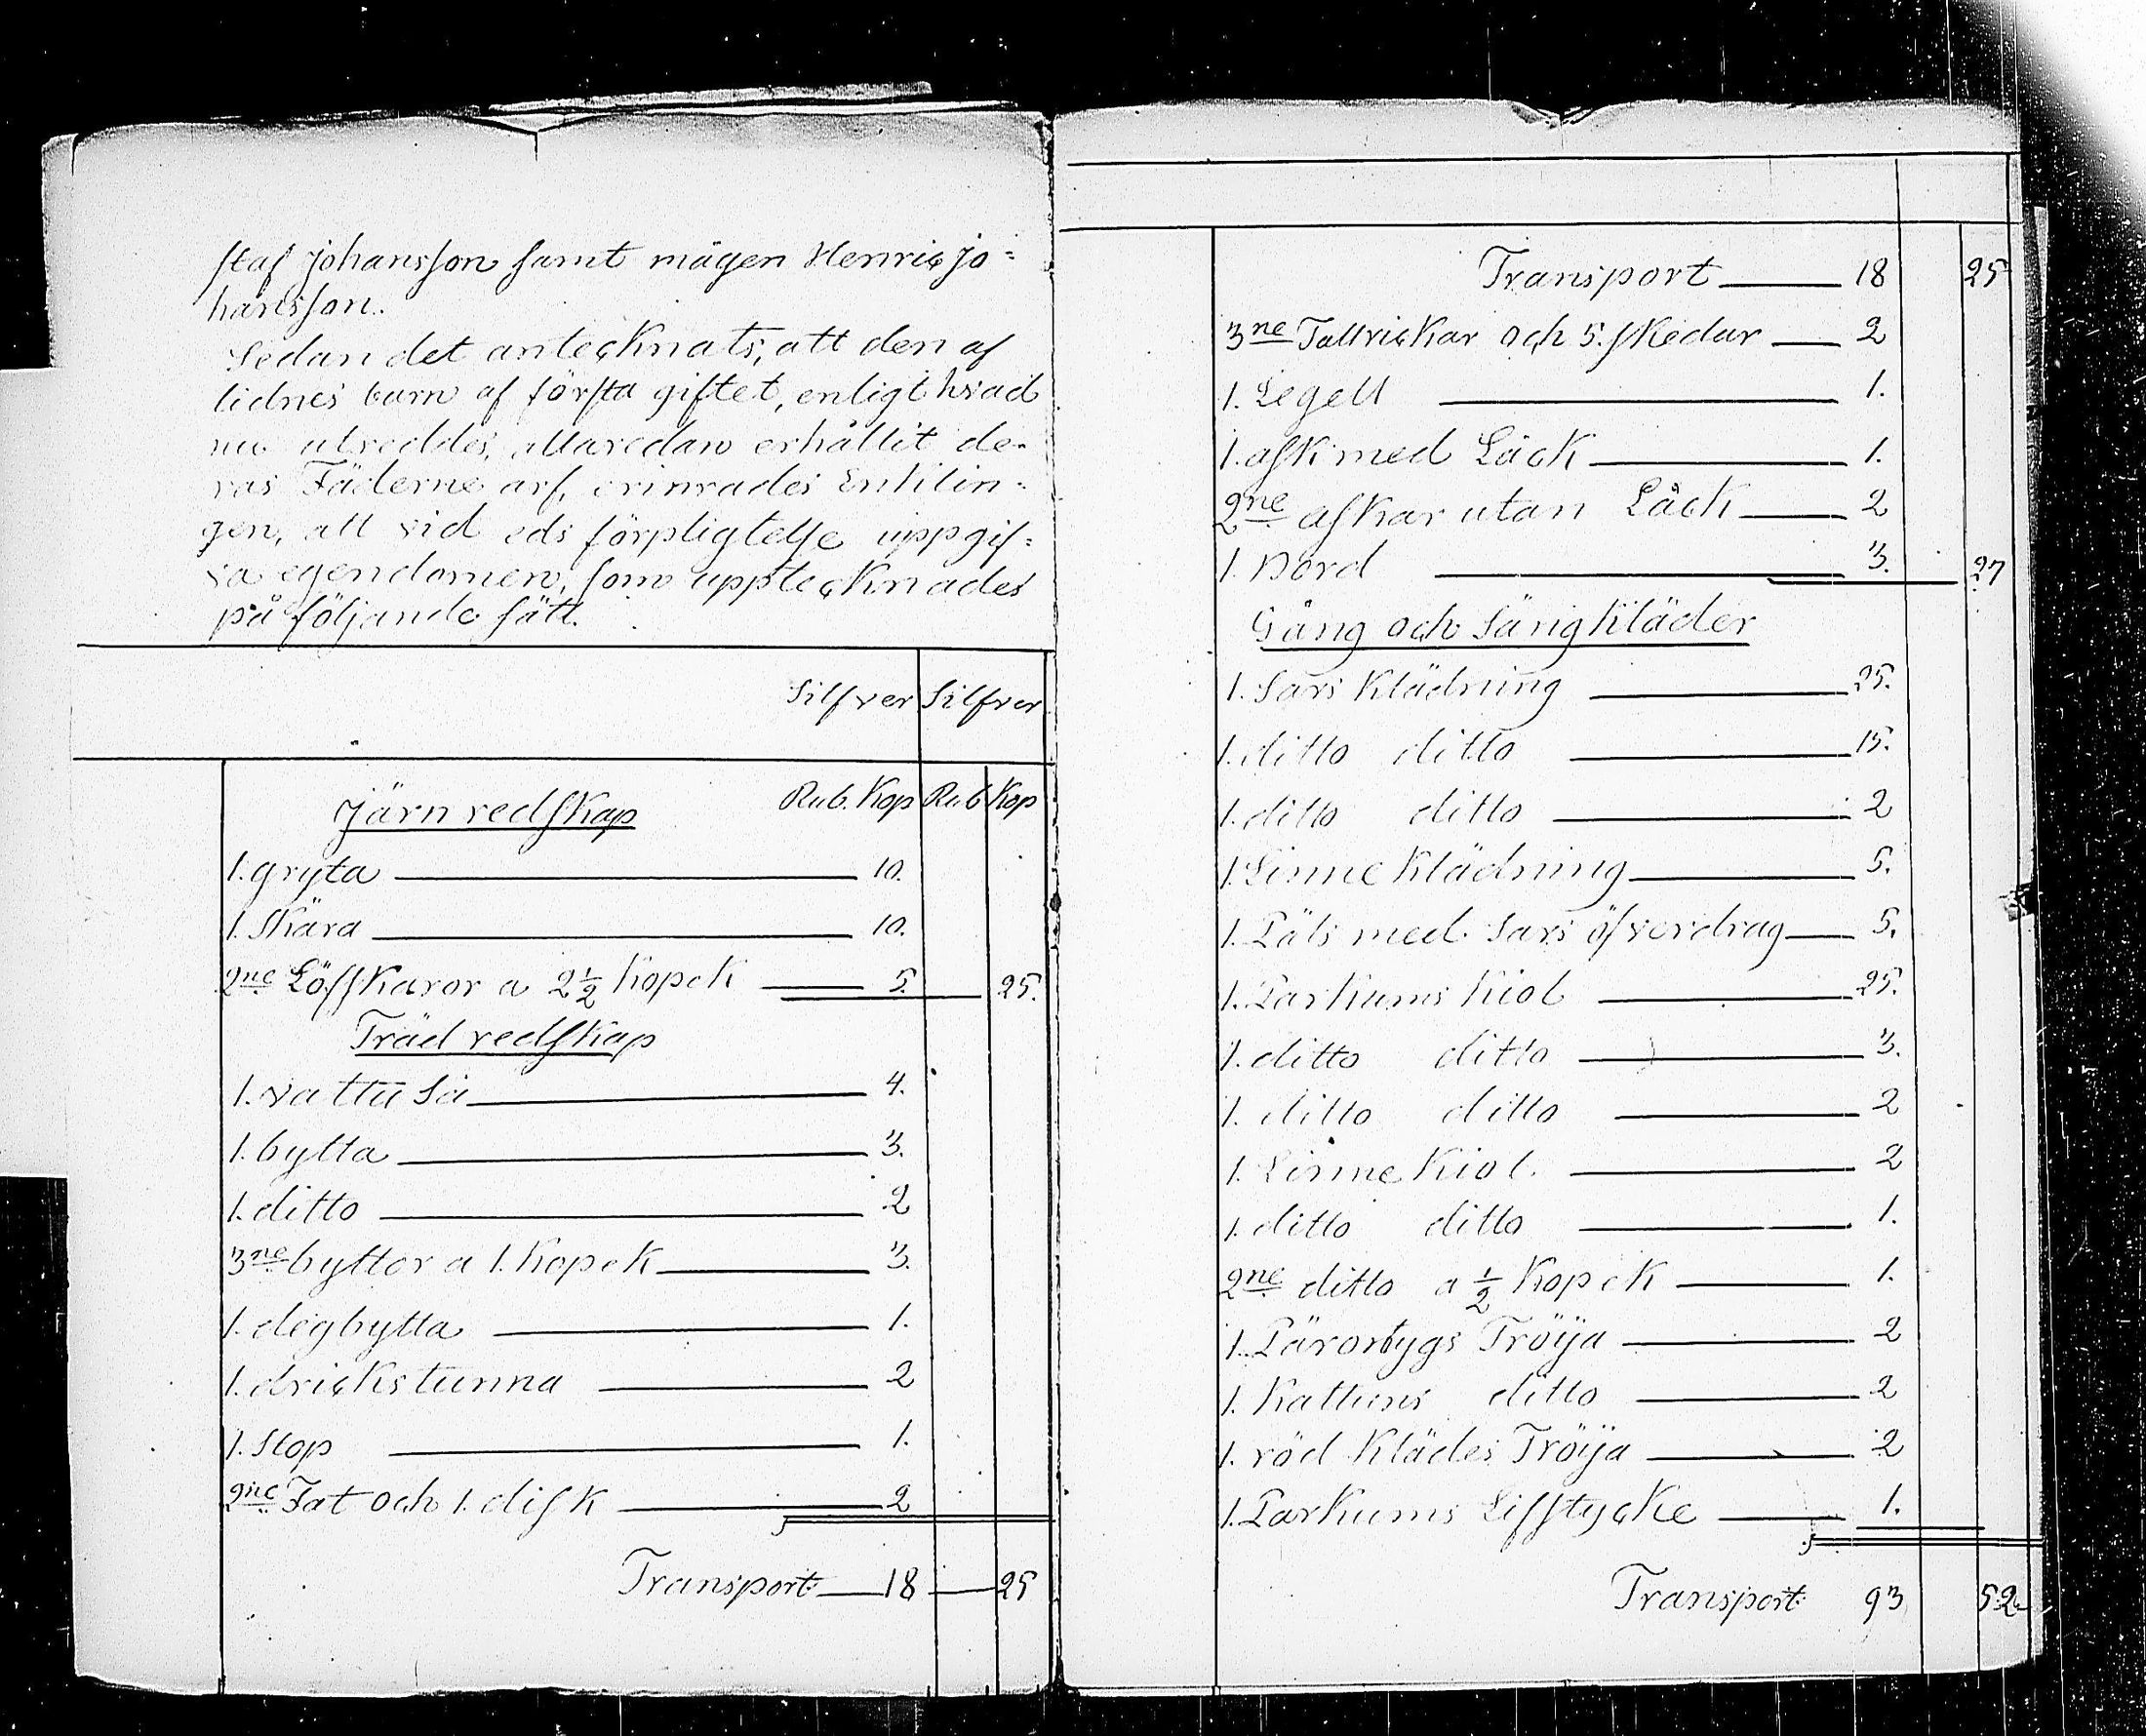 staf Johansson samt mågen Henric Jo=
hansson.
Sedan det antecknats, att den af
lidnes barn af första giftet, enligt hvad
nu utreddes, allaredan erhållit de=
ras Fäderne arf, erinrades Enklin=
gen, att vid eds förpligtelse uppgif=
va egendomen, som upptecknades
på följande sätt.
Silfver Silfver
Rub. Kop Rub Kop
Järn redskap
1. gryta 10.
1. Skära 10.
2ne Löfskaror a 2½ Kopek 5. 25.
Träd redskap
1. vattu så 4.
1. bytta 3.
1. ditto 2
3ne byttor a 1. Kopek 3.
1. degbytta 1.
1. drickstunna 2
1. Stop 1.
2ne Fat och 1. disk 2
Transport 18 25
Transport 18 25
3ne Tallrickar och 5. skedar 2
1. Legell 1.
1. ask med Låck 1.
2ne askar utan Låck 2
1. Bord 3. 27
Gång och Sängkläder
1. Sars Klädning 25.
1. ditto ditto 15.
1. ditto ditto 2
1. Linne Klädning 5.
1. Päls med Sars öfverdrag 5.
1. Parkums Kiol 25.
1. ditto ditto 3.
1. ditto ditto 2
1. Linne Kiol 2
1. ditto ditto 1.
2ne ditto a ½ Kopek 1.
1. Tröija 2
1. Kattuns ditto 2
1. röd Klädes Tröija 2
1. Parkums Lifstycke 1.
Transport 93 52